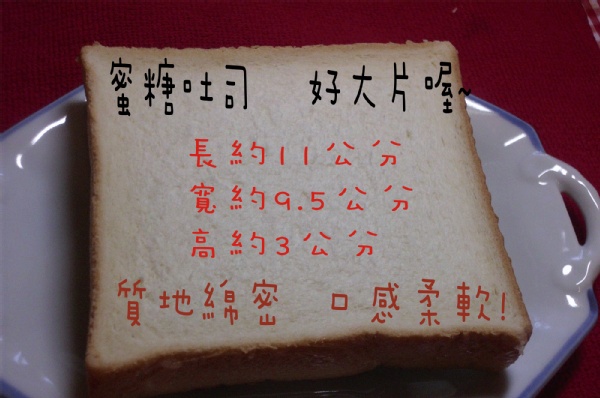 蜜糖吐司 好大片喔~
長約11公分
寬約9.5公分
高約3公分
質地綿密 口感柔軟!